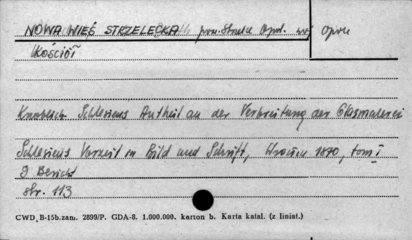 NOWA WIEŚ STRZELECKA pow. Strzelce Opol. woj Opole
Kościół
Knoblich Schlesiens Antheil an der Verbreitung der Glasmalerei
Schlesiens Vorzeit in Bild und Schrift, Wrocław 1870, tom I
9 Bericht
str. 113
CWD, B-15b.zam. 2899/P. GDA-8. 1.000.000. karton b. Karta katal. (z liniat.)